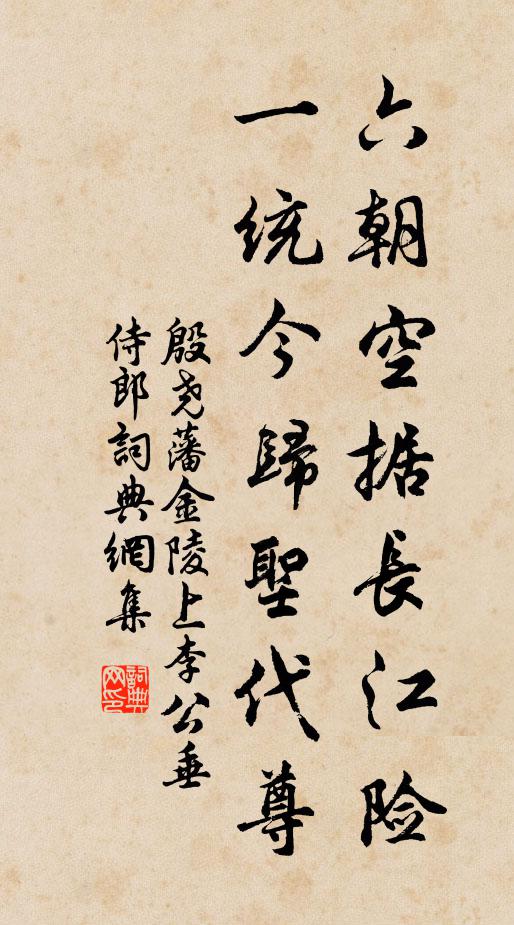 六朝空据長江险
一统今歸聖代尊
殷尧藩金陵上李公垂
侍郎詞典網集
詞典网印